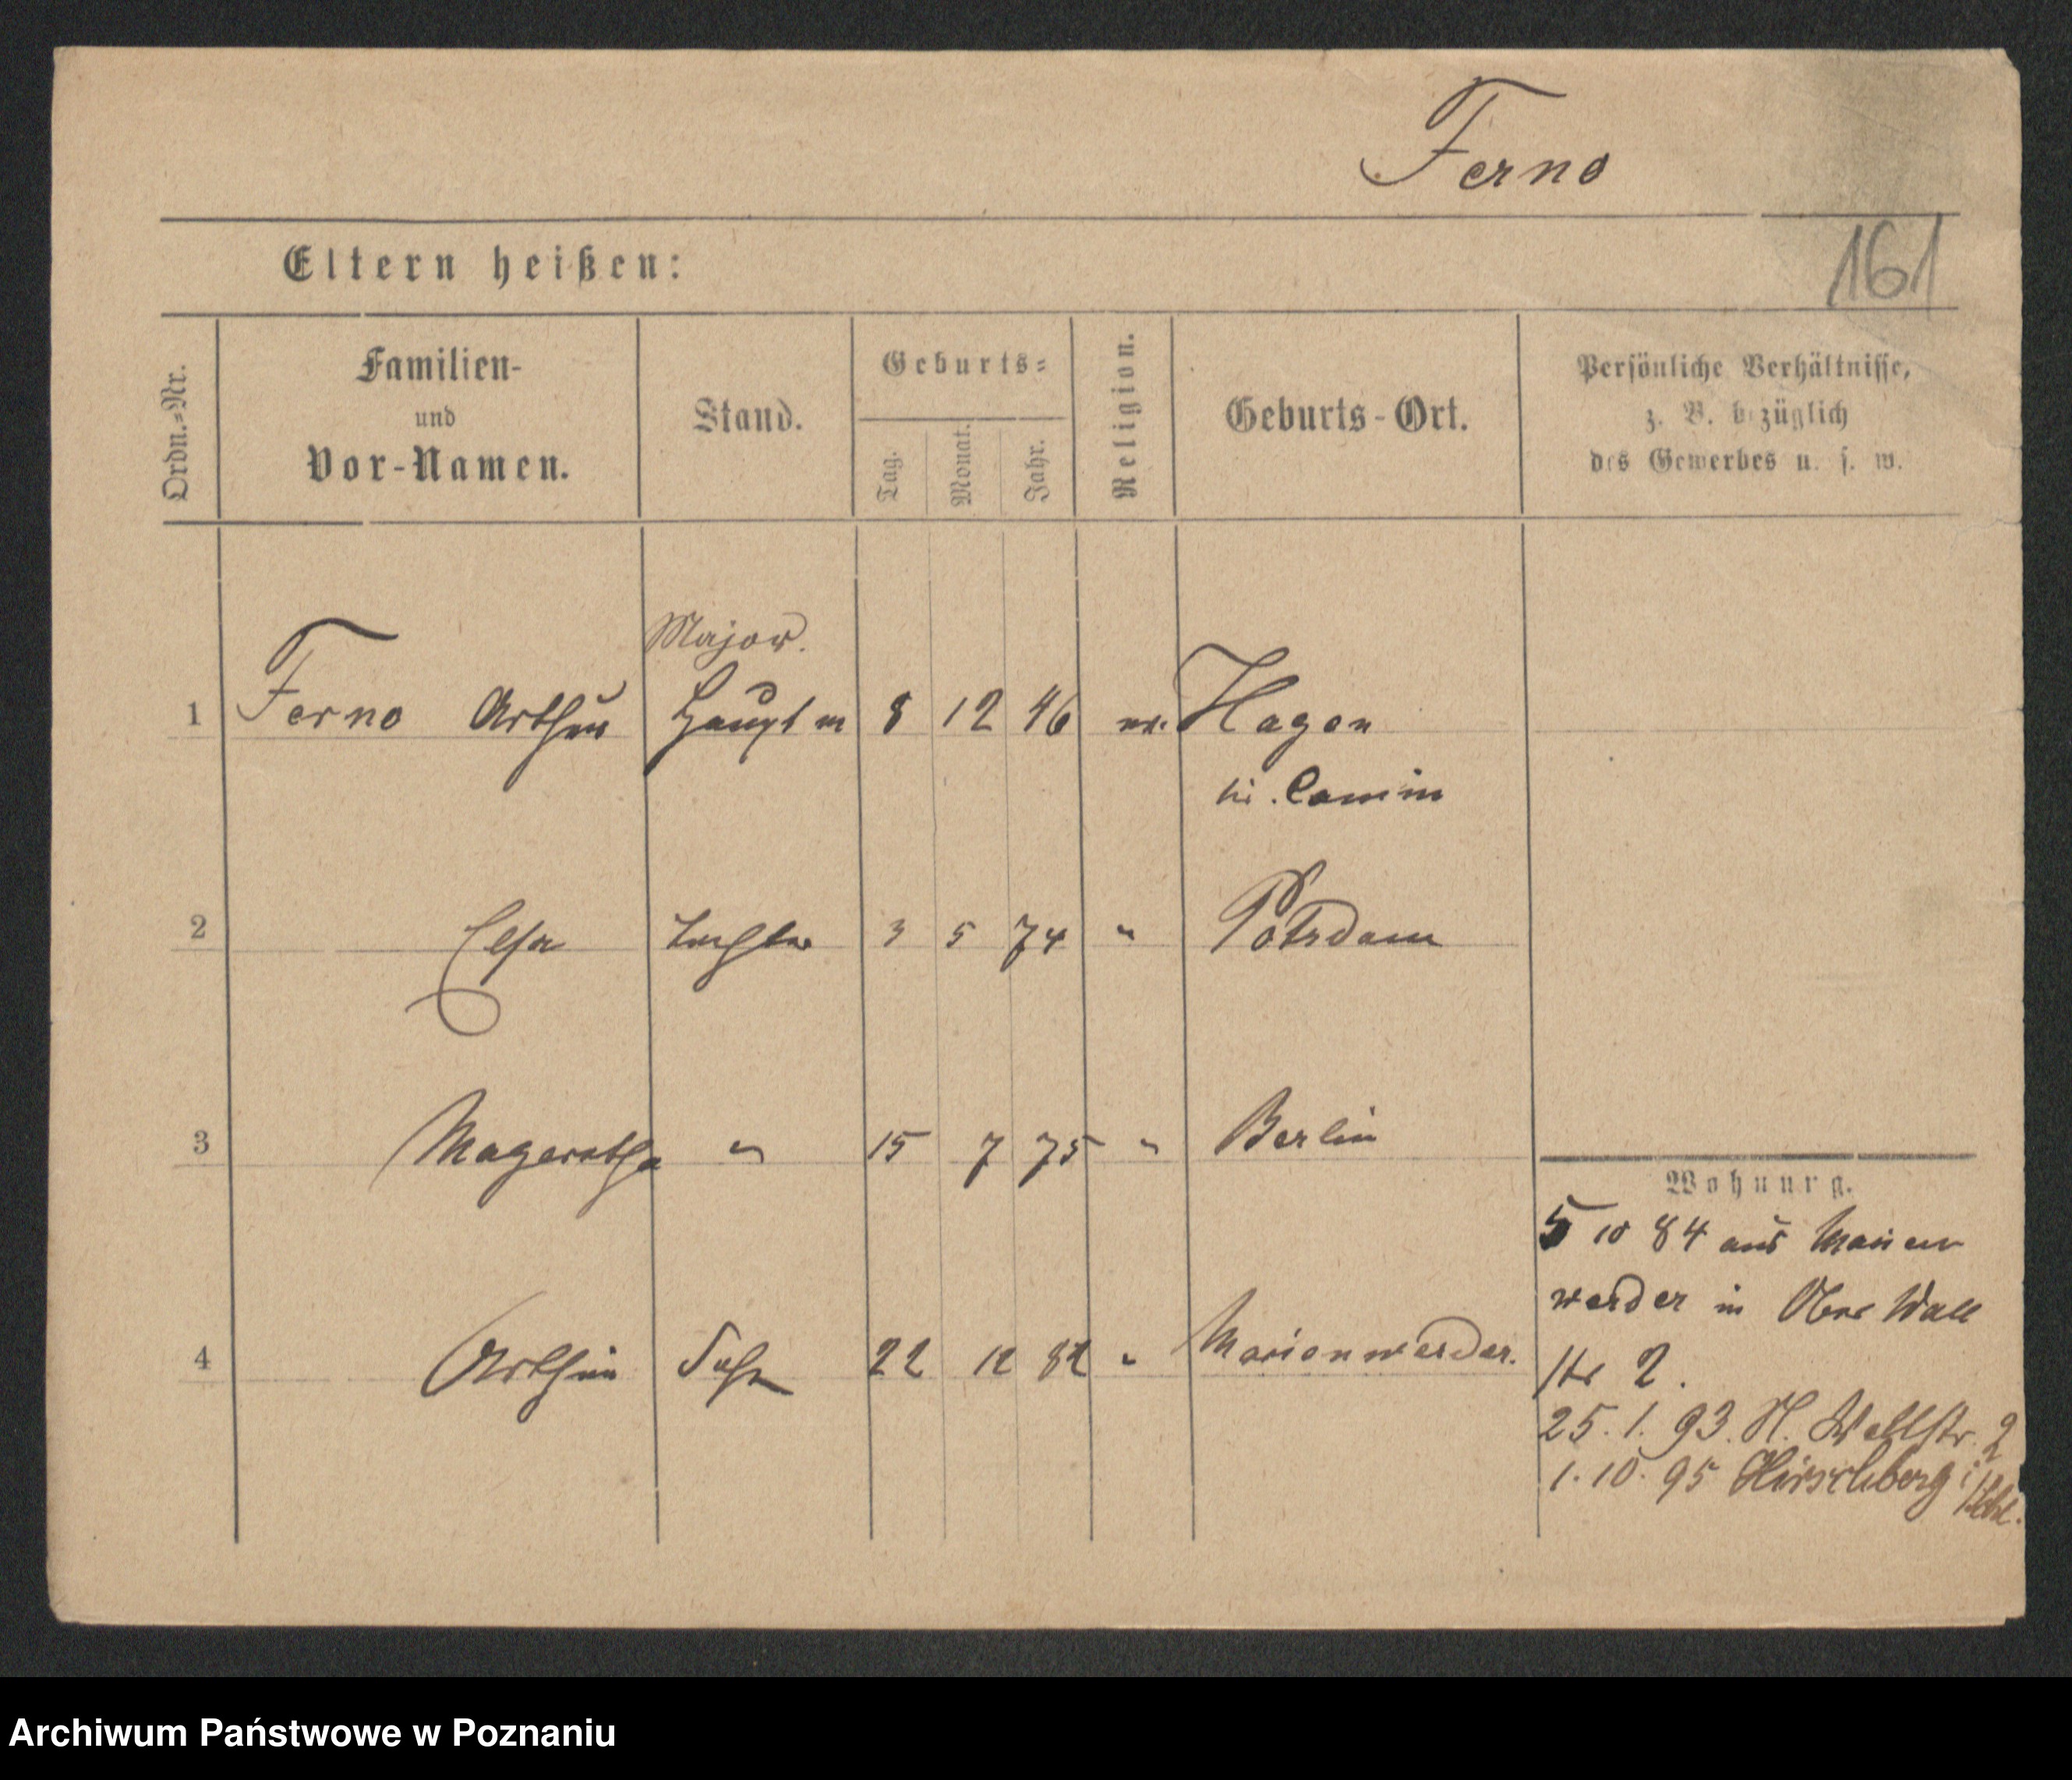 Ferno
161
Eltern heißen:
Ordn.=Nr.
Familien-
und
Vor-Namen.
Stand.
Geburts=
Tag.
Monat.
Jahr.
Religion.
Geburts-Ort.
Persönliche Verhältnisse,
z. B. bezüglich
des Gewerbes u. s. w.
Major.
1 Ferno Arthur Hauptm 8 12 46 ev. Hagen
Kr. Camin
2 Elsa Tochter 3 5 74 " Potsdam
3 Mageretha " 15 7 75 " Berlin
Wohnung.
5 10 84 aus Marien
werder in Ober Wall
str 2.
4 Arthur Sohn 22 12 82 " Marienwerder.
25. 1. 93. N. Wallstr. 2
1. 10. 95 Hirschberg i/Schl.
Archiwum Państwowe w Poznaniu